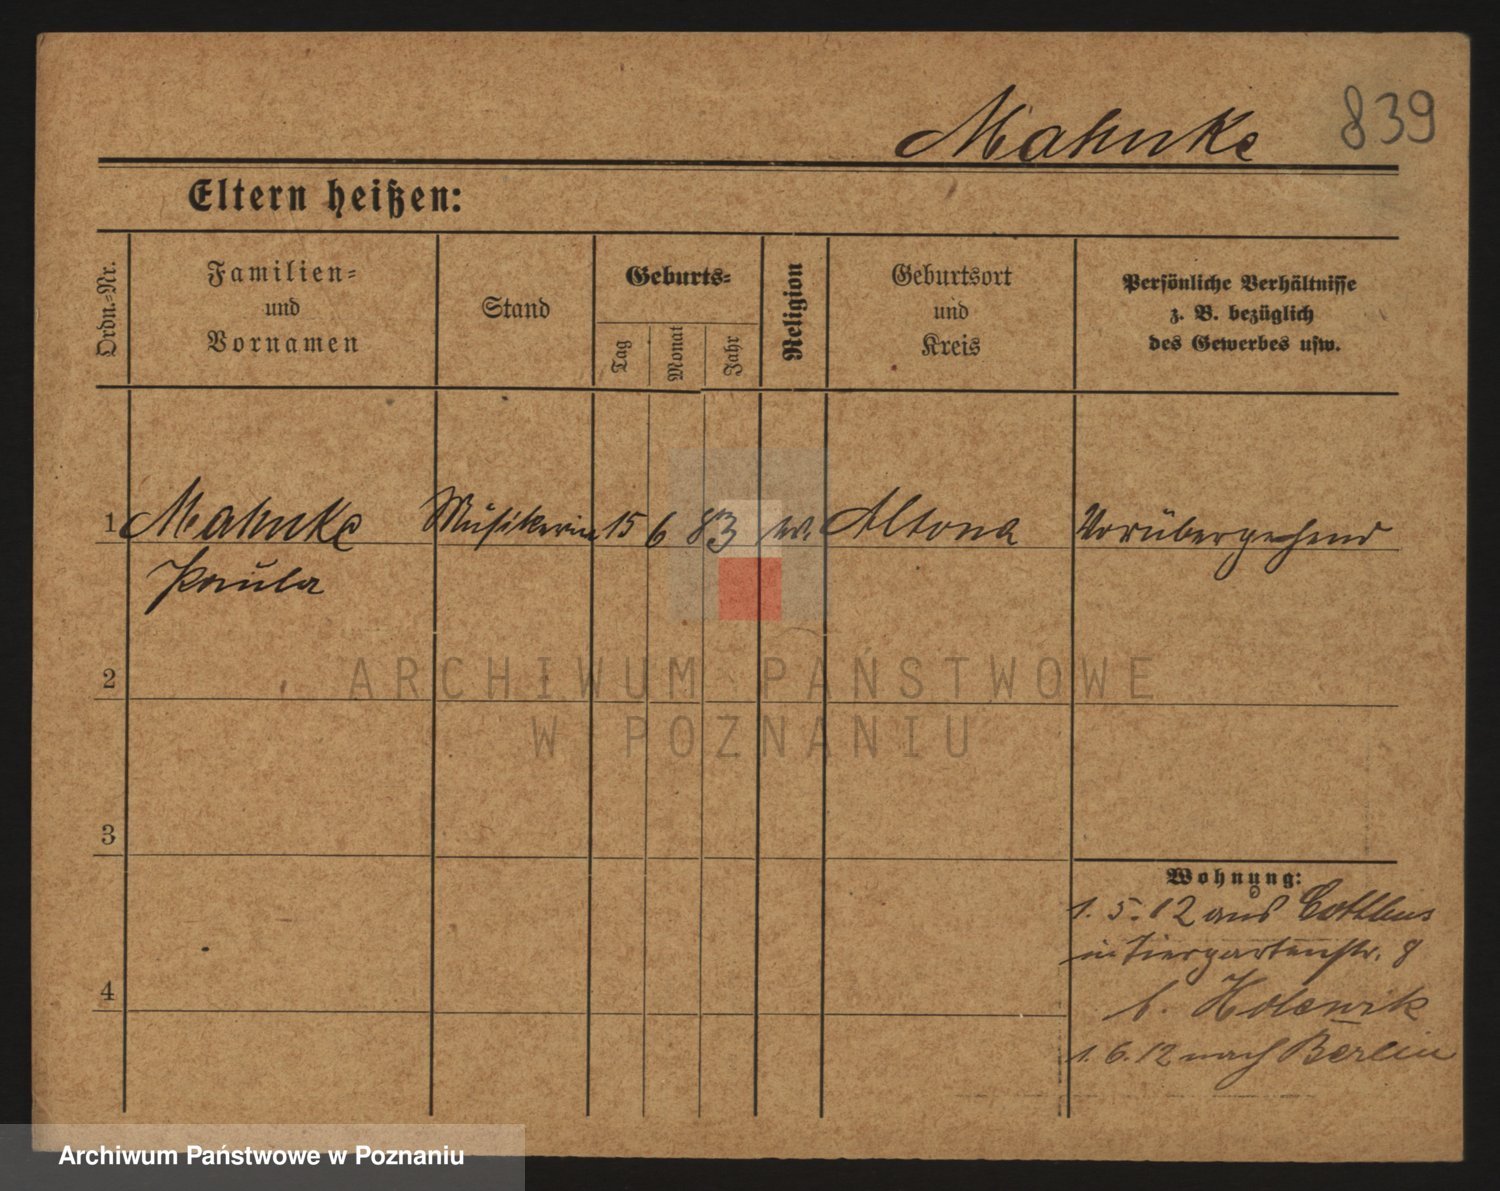 Mahnke 839
Eltern heißen:
Ordn.=Nr.
Familien=
und
Vornamen
Stand
Geburts=
Tag
Monat
Jahr
Religion
Geburtsort
und
Kreis
Persönliche Verhältnisse
z. B. bezüglich
des Gewerbes usw.
1 Mahnke Musikerin 15 6 83 ev. Altona Vorübergehend
Paula
2
3
4
Wohnung:
1. 5. 12 aus Cottbus
in Tiergartenstr. 8
b.
1. 6. 12 nach Berlin
ARCHIWUM PAŃSTWOWE
W POZNANIU
Archiwum Państwowe w Poznaniu